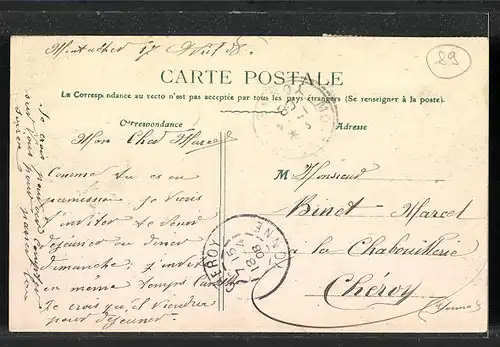 Montacher 17 Avril 08.
89
CARTE POSTALE
La Correspondance au recto n'est pas acceptée par tous les pays étrangers (Se renseigner à la poste).
Correspondance
Adresse
Mon Cher Marcel
Comme tu es en
permission je viens
t'inviter à venir
déjeuner ou diner
dimanche; j'invite
en même temps
Je crois qu'il viendra
pour déjeuner.
Je crois
sur vous pour
M Monsieur
Binet Marcel
à la Chabouillerie
Cheroy
(Yonne)
CHEROY
YONNE
15
18
08